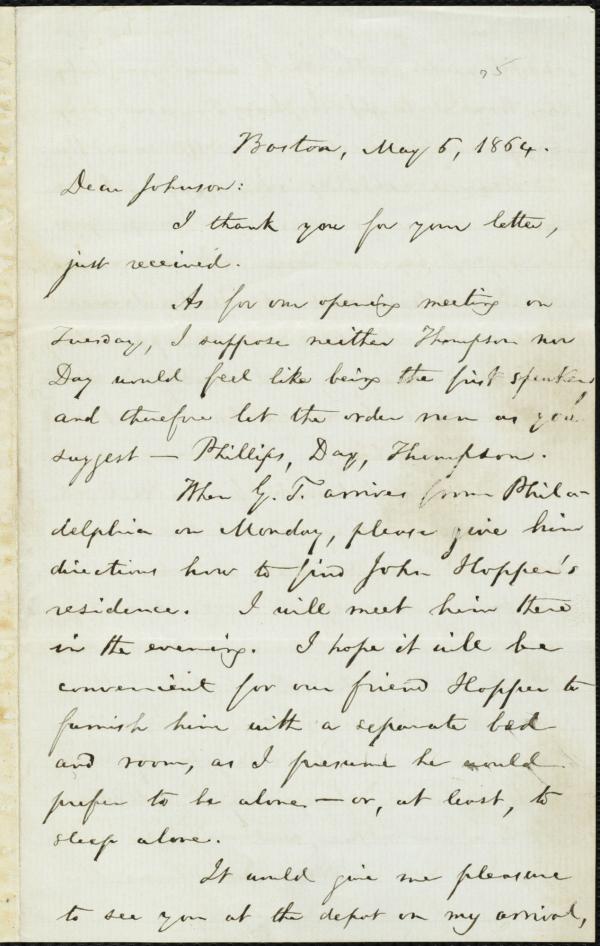 75
Boston, May 6, 1864.
Dear Johnson:
I thank you for your letter,
just received.
As for our opening meeting on
Tuesday, I suppose neither Thompson nor
Day would feel like being the first speaker,
and therefore let the order run as you
suggest — Phillips, Day, Thompson.
When G. T. arrives from Phila-
delphia on Monday, please give him
directions how to find John Hopper's
residence. I will meet him there
in the evening. I hope it will be
convenient for our friend Hopper to
furnish him with a separate bed
and room, as I presume he would
prefer to be alone — or, at least, to
sleep alone.
It would give me pleasure
to see you at the depot on my arrival,